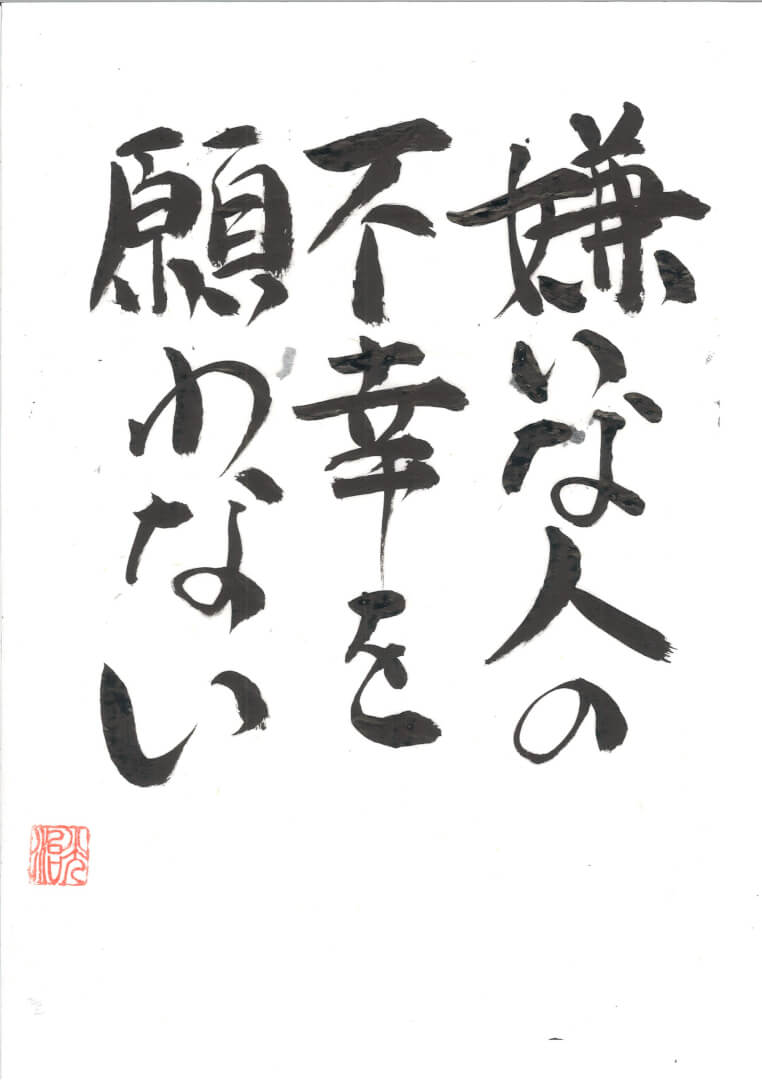 嫌いな人の
不幸を
願わない